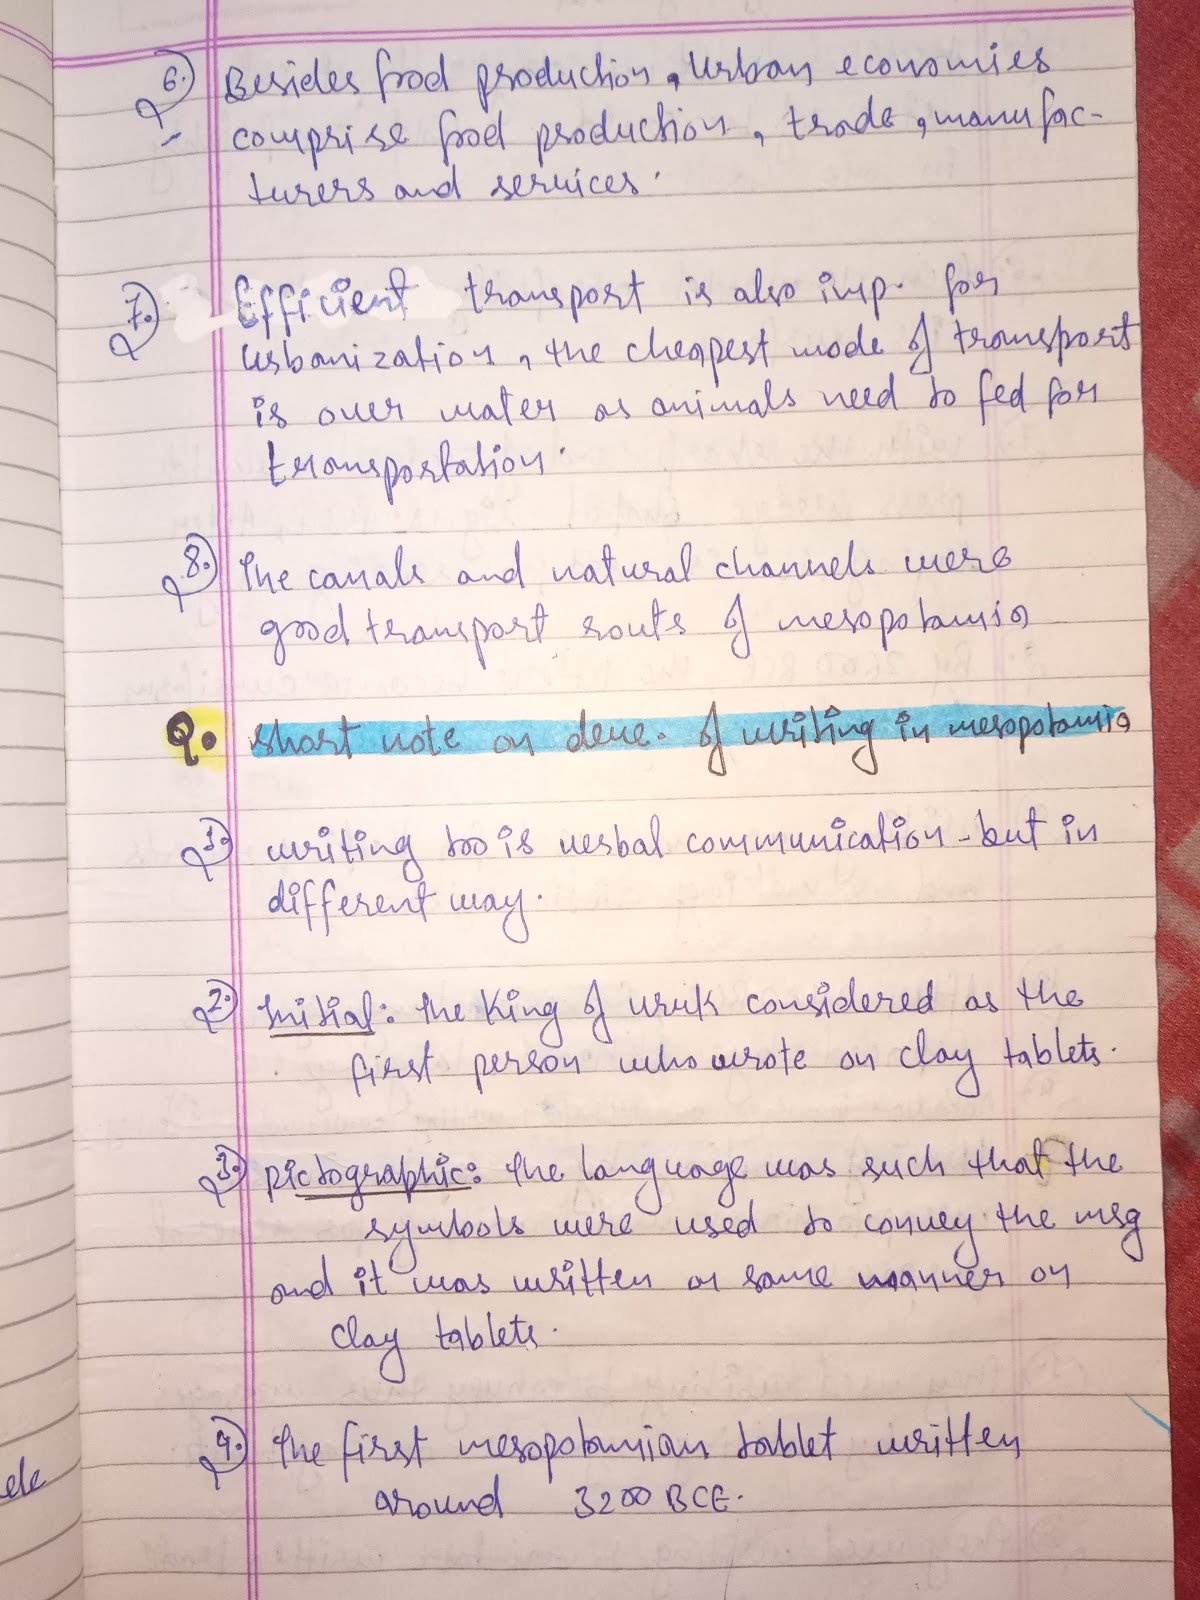 6.) Besides food production, Urban economies
comprise food production, trade, manufac-
turers and services.
7.) Efficient transport is also imp. for
urbanization, the cheapest mode of transport
is over water as animals need to fed for
transportation.
8.) The canals and natural channels were
good transport routs of mesopotamia
Q. short note on deve. of writing in mesopotamia
1.) writing too is verbal communication - but in
different way.
2.) Initial: the King of uruk considered as the
first person who wrote on clay tablets.
3.) pictographic: The language was such that the
symbols were used to convey the msg
and it was written on same manner on
clay tablets.
4.) The first mesopotamian tablet written
around 3200 BCE.